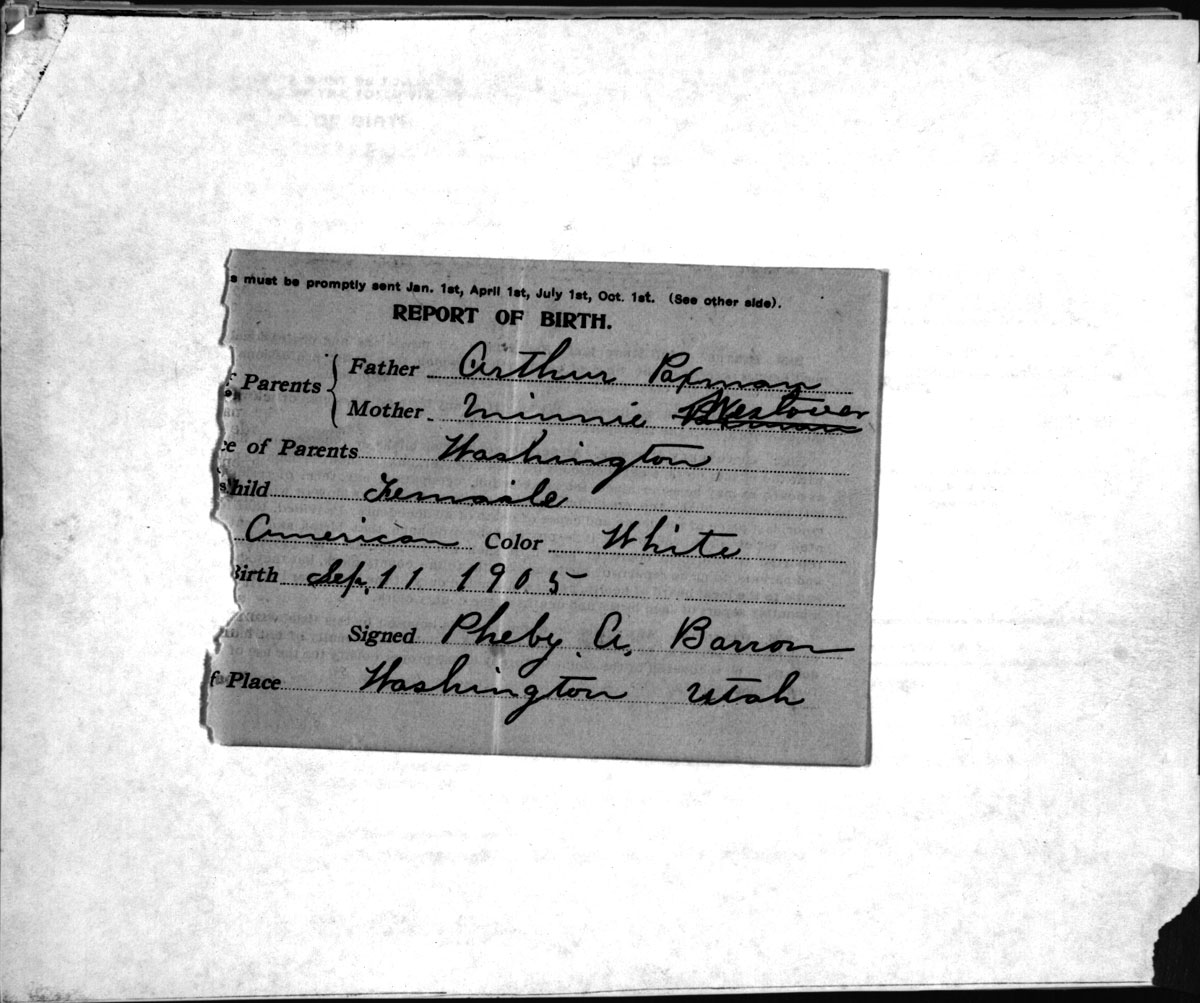 s must be promptly sent Jan. 1st, April 1st, July 1st, Oct. 1st. (See other side).
REPORT OF BIRTH.
Parents { Father Arthur Paxman
Mother Minnie Westover
e of Parents Washington
Child Female
American Color White
Birth Sep. 11 1905
Signed Pheby A. Barron
Place Washington Utah